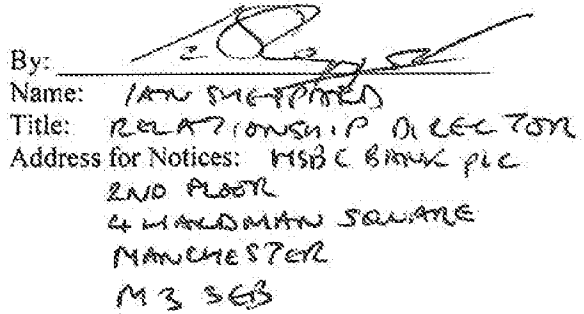 By:
Name: IAN SHEPPARD
Title: RELATIONSHIP DIRECTOR
Address for Notices: HSBC BANK plc
2ND FLOOR
4 HARDMAN SQUARE
MANCHESTER
M3 3EB